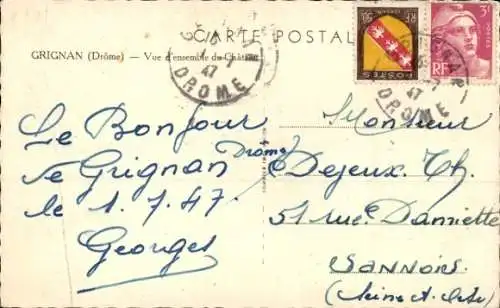 CARTE POSTAL
GRIGNAN (Drôme) — Vue d'ensemble du Château
RF 50
POSTES
3F
RF
7
47
DROME
7
47
DROME
Le Bonjour
de Grignan Drôme
le 1.7.47.
Georges
Monsieur
Dejeux. Th.
51 rue Damiette
SANNOIS
(Seine et Oise)